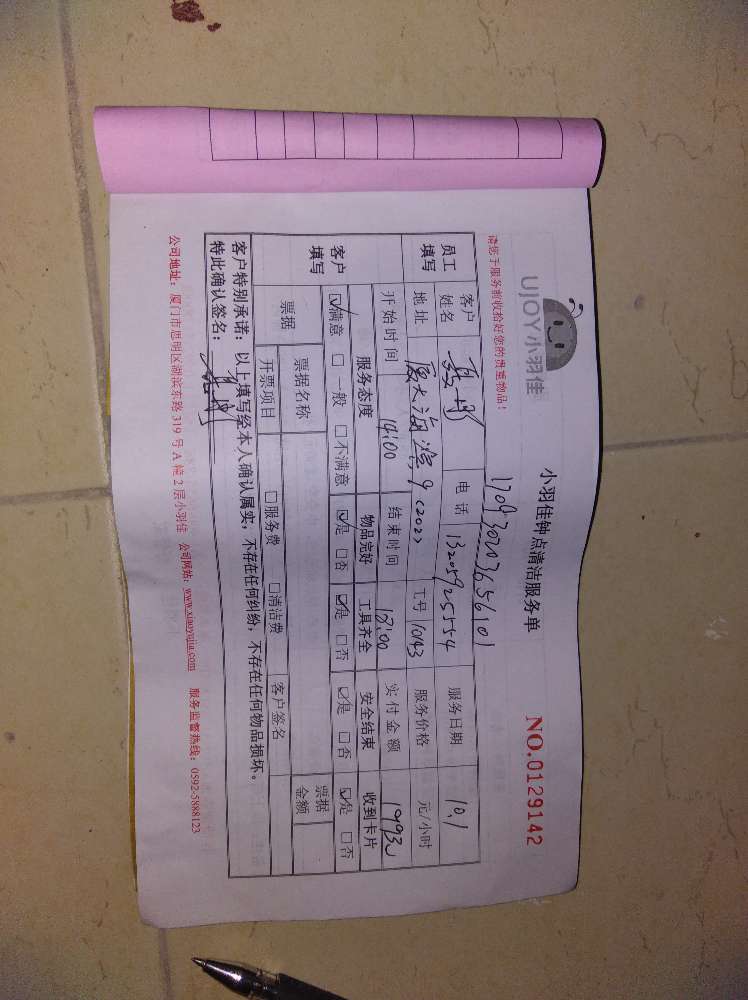 UJOY小羽佳
小羽佳钟点清洁服务单
NO.0129142
请您于服务前收拾好您的贵重物品！
170930203656101
员工填写
客户姓名 电话 13205925554 服务日期 10.1
地址 厦大海滨9(202) 工号 10143 服务价格 元/小时
开始时间 14:00 结束时间 18:00 实付金额
客户填写
服务态度 物品完好 工具齐全 安全结束 收到卡片
☑满意 □一般 □不满意 ☑是 □否 ☑是 □否 ☑是 □否 ☑是 □否
票据 票据名称 票据金额
开票项目 □服务费 □清洁费 客户签名
客户特别承诺：以上填写经本人确认属实，不存在任何纠纷，不存在任何物品损坏。
特此确认签名：
公司地址：厦门市思明区湖滨东路319号A幢2层小羽佳 公司网站：www.xiaoyujia.com 服务监督热线：0592-5888123